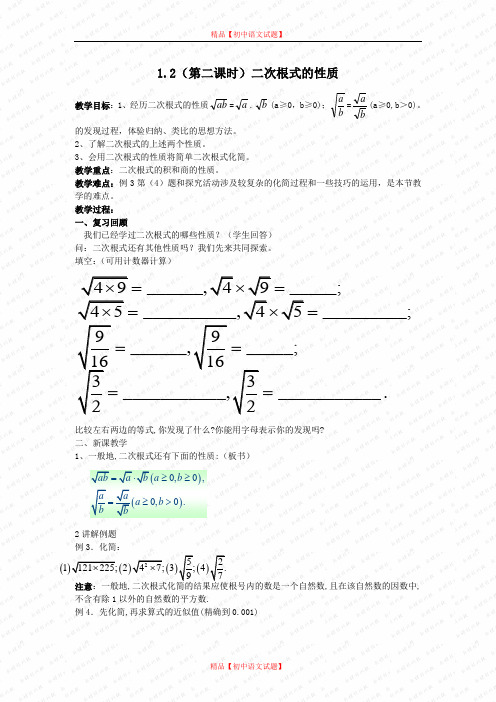 精品【初中语文试题】
1.2（第二课时）二次根式的性质
教学目标：1、经历二次根式的性质√ab=√a·√b（a≥0，b≥0）；√(a/b)=√a/√b（a≥0,b＞0）。
的发现过程，体验归纳、类比的思想方法。
2、了解二次根式的上述两个性质。
3、会用二次根式的性质将简单二次根式化简。
教学重点：二次根式的积和商的性质。
教学难点：例3第（4）题和探究活动涉及较复杂的化简过程和一些技巧的运用，是本节教
学的难点。
教学过程：
一、复习回顾
我们已经学过二次根式的哪些性质？（学生回答）
问：二次根式还有其他性质吗？我们先来共同探索。
填空：（可用计数器计算）
√4×9 = ______,√4×√9 = _____;
√4×5 = __________,√4×√5 = _________;
√(9/16) = ______,√(9/16) = _____;
√(3/2) = ___________,√(3/2) = ___________.
比较左右两边的等式,你发现了什么?你能用字母表示你的发现吗?
二、新课教学
1、一般地,二次根式还有下面的性质:（板书）
√ab=√a·√b(a≥0,b≥0),
√(a/b)=√a/√b(a≥0,b>0).
2讲解例题
例3．化简：
(1)√121×225;(2)√4²×7;(3)√(5/9);(4)√(2/7).
注意：一般地,二次根式化简的结果应使根号内的数是一个自然数,且在该自然数的因数中,
不含有除1以外的自然数的平方数.
例4．先化简,再求算式的近似值(精确到0.001)
精品【初中语文试题】